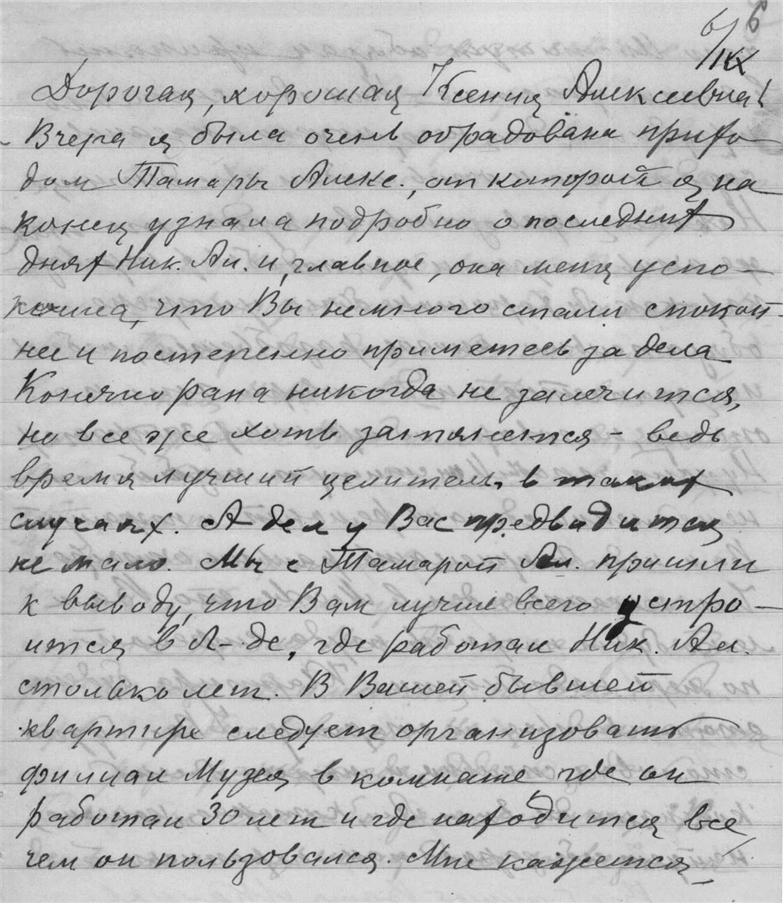 6/IX 6
Дорогая, хорошая Ксения Алексеевна!
Вчера я была очень обрадована прихо-
дом Тамары Алекс., от которой я на
конец узнала подробно о последних
днях Ник. Ал. и, главное, она меня успо-
коила, что Вы немного стали спокой-
нее и постепенно приметесь за дела
Конечно рана никогда не залечится,
но все же хоть затянется - ведь
время лучший целитель в таких
случаях. А дел у Вас предвидится
не мало. Мы с Тамарой Ал. пришли
к выводу, что Вам лучше всего устро-
ится в Л-де, где работал Ник. Ал.
столько лет. В Вашей бывшей
квартире следует организовать
филиал Музея в комнате где он
работал 30 лет и где находится все
чем он пользовался. Мне кажется